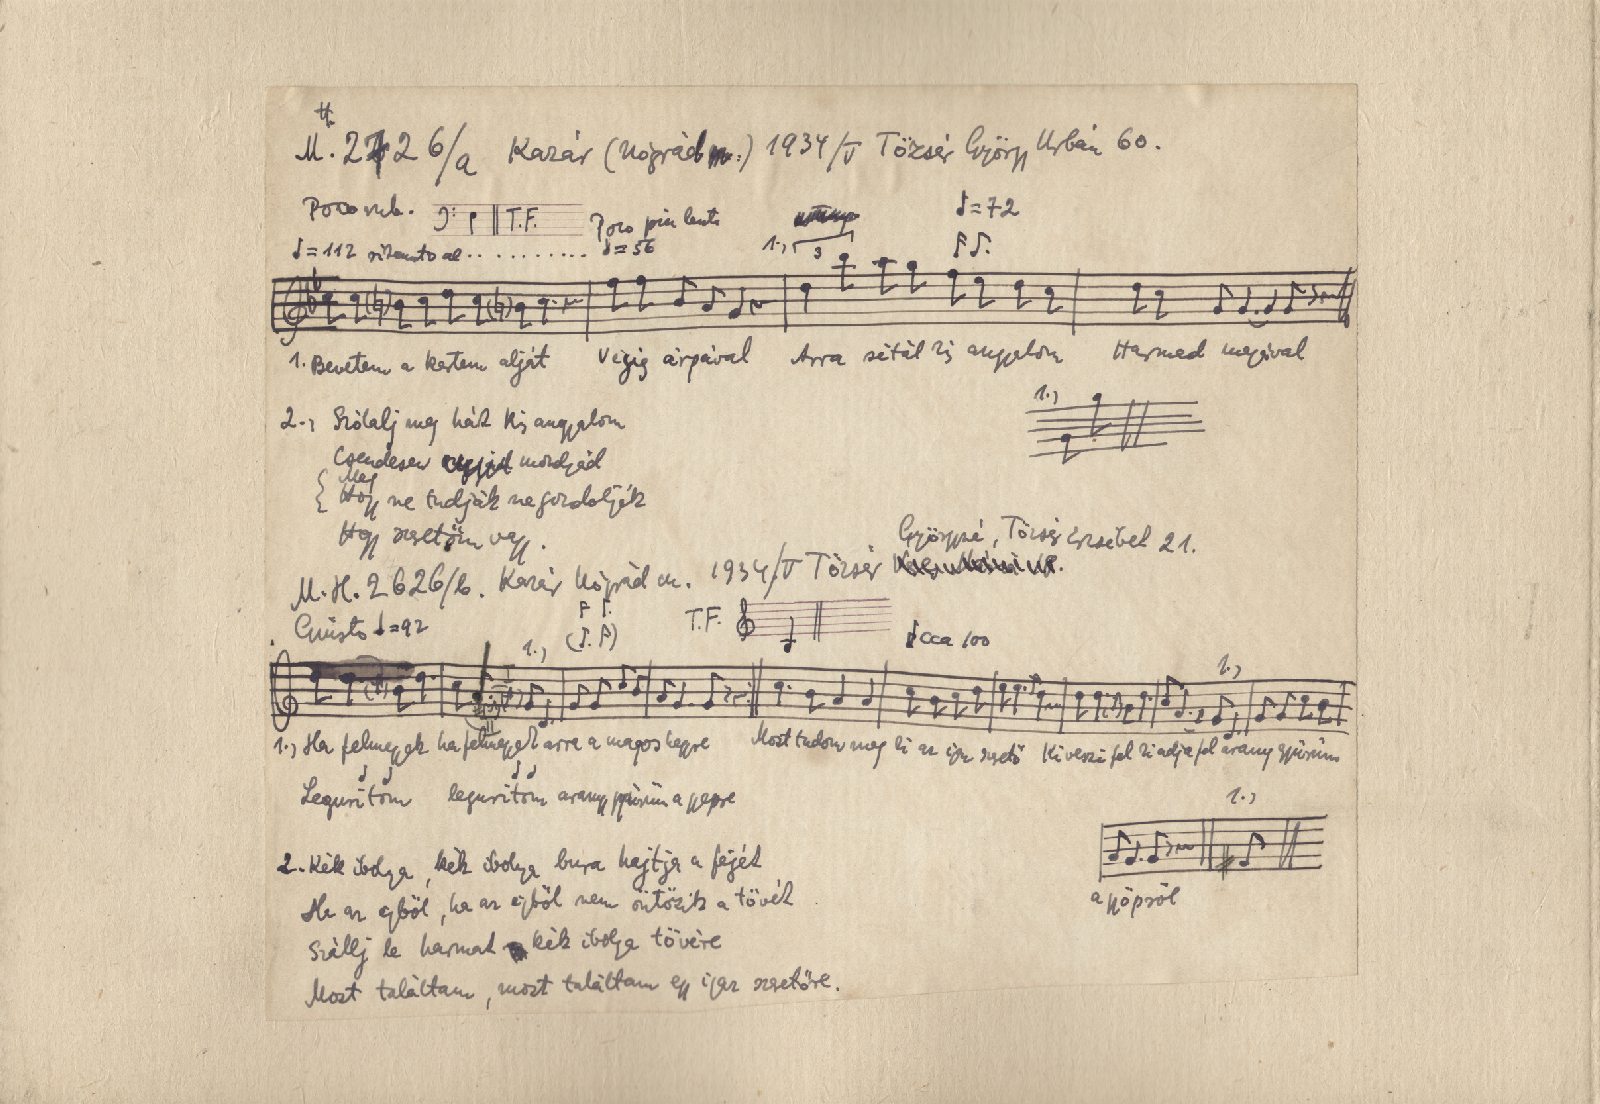 M. H. 2626/a Kazár (Nógrád m.) 1934/V Tőzsér György Urbán 60.
Poco rub. T.F. Poco più lento ♩=72
♩=112 ritenuto al .......... ♩=56 1., 3
1. Bevetem a kertem alját Végig árpával Arra sétál kis angyalom Harmad magával
1.,
2., Szólalj meg hát kis angyalom
Csendesen mondjad
Meg
Hogy ne tudják ne gondolják
Hogy szeretőm vagy.
Györgyné, Tőzsér Erzsébet 21.
M. H. 2626/b. Kazár Nógrád m. 1934/V Tőzsér
Giusto ♩=92 T.F. cca 100
1., 1.,
1., Ha felmegyek ha felmegyek arra a magos hegyre Most tudom meg ki az igaz szerető Ki veszi fel ki adja fel arany gyűrűm
Legurítom legurítom arany gyűrűm a gyepre
1.,
2. Kék ibolya, kék ibolya búra hajtja a fejét
Ha az égből, ha az égből nem öntözik a tövét
a göpröl
Szállj le harmat kék ibolya tövére
Most találtam, most találtam egy igaz szeretőre.